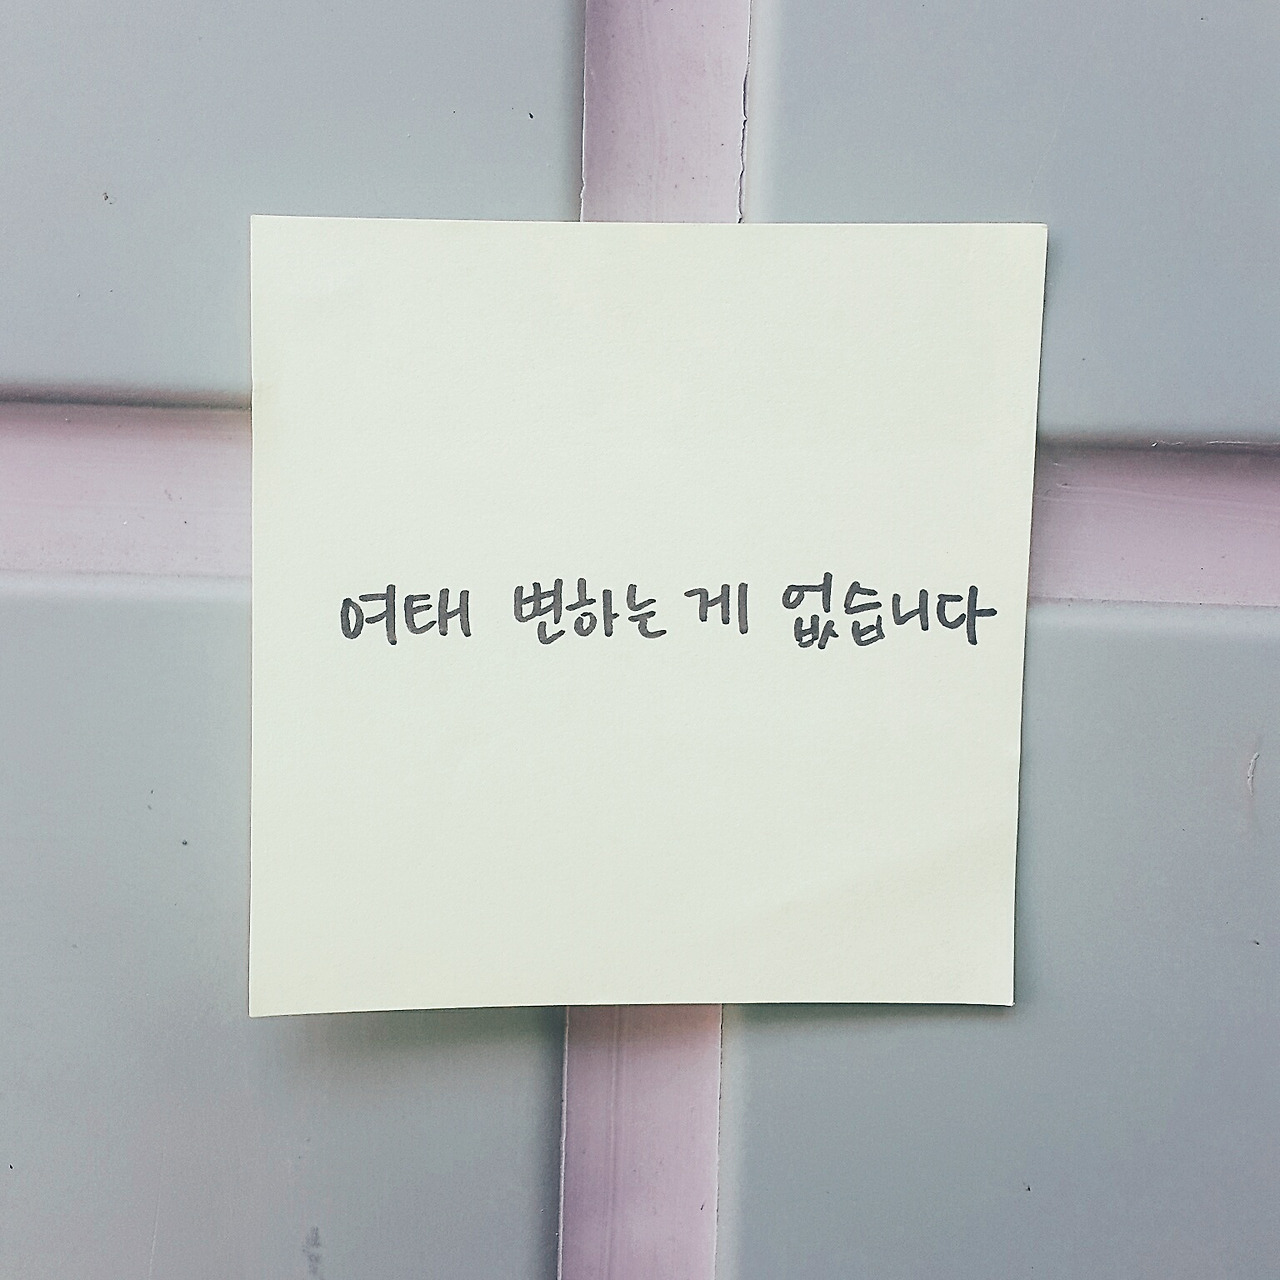 여태 변하는 게 없습니다